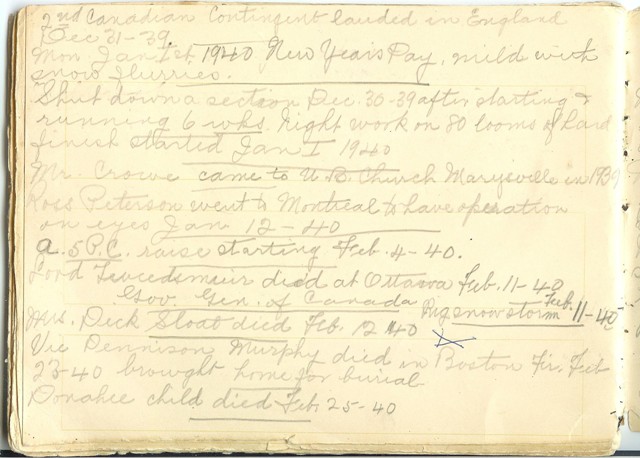 2nd Canadian Contingent landed in England
Dec 31-39
Mon Jan 1st. 1940 New Years Pay, mild with
snow flurries.
Shut down a section Dec. 30-39 after starting &
running 6 wks. night work on 80 looms of hard
finish started Jan 1 1940
Mr. Crowe came to U.B. Church Marysville in 1939
Ross Peterson went to Montreal to have operation
on eyes Jan 12-40
a. 5 P.C. raise starting Feb. 4-40.
Lord Tweedsmuir died at Ottawa Feb. 11-40
Gov. Gen. of Canada Big snow storm Feb. 11-40
Mrs. Dick Sloat died Feb. 12 40
Vic Dennison Murphy died in Boston Fri. Feb
23-40 brought home for burial
Donahie child died Feb. 25-40